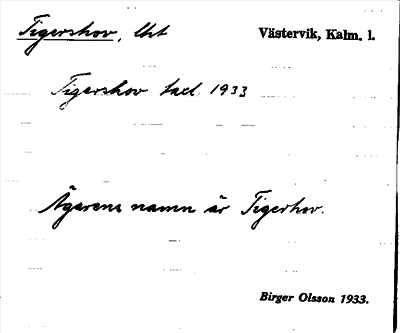 Tigershov, lht
Västervik, Kalm. l.
Tigershov tael. 1933
Ägarens namn är Tigerhov.
Birger Olsson 1933.